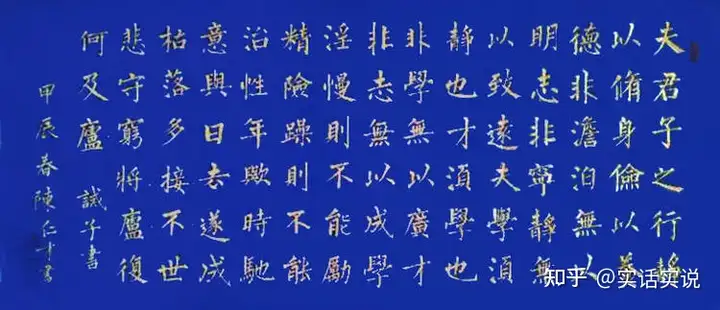 夫君子之行靜
以脩身儉以養
德非澹泊無以
明志非寧靜無
以致遠夫學須
靜也才須學也
非學無以廣才
非志無以成學
淫慢則不能勵
精險躁則不能
治性年歟時馳
意與日去遂成
枯落多接不世
悲守窮將廬復
何及廬 誡子書
甲辰春陳仁才書
知乎 @实话实说